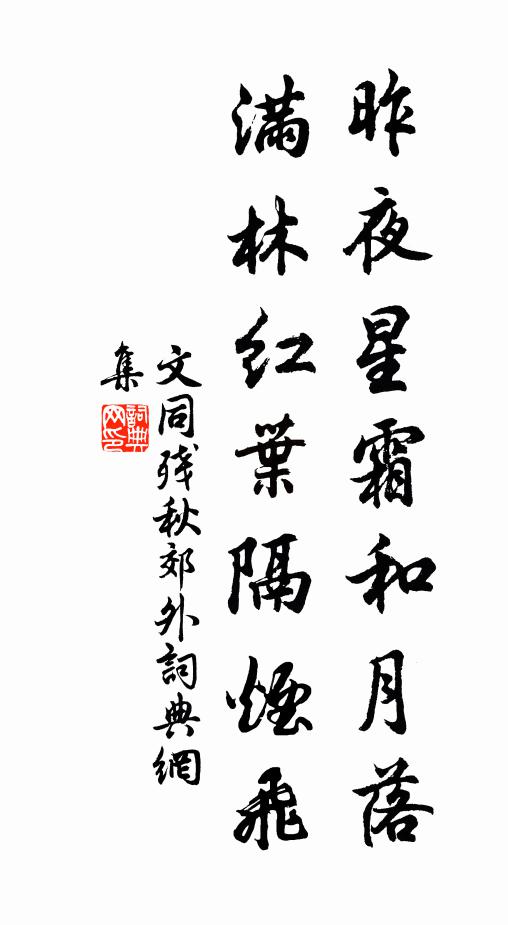 昨夜星霜和月落
滿林紅葉隔煙飛
文同残秋郊外詞典網
集
詞典網印